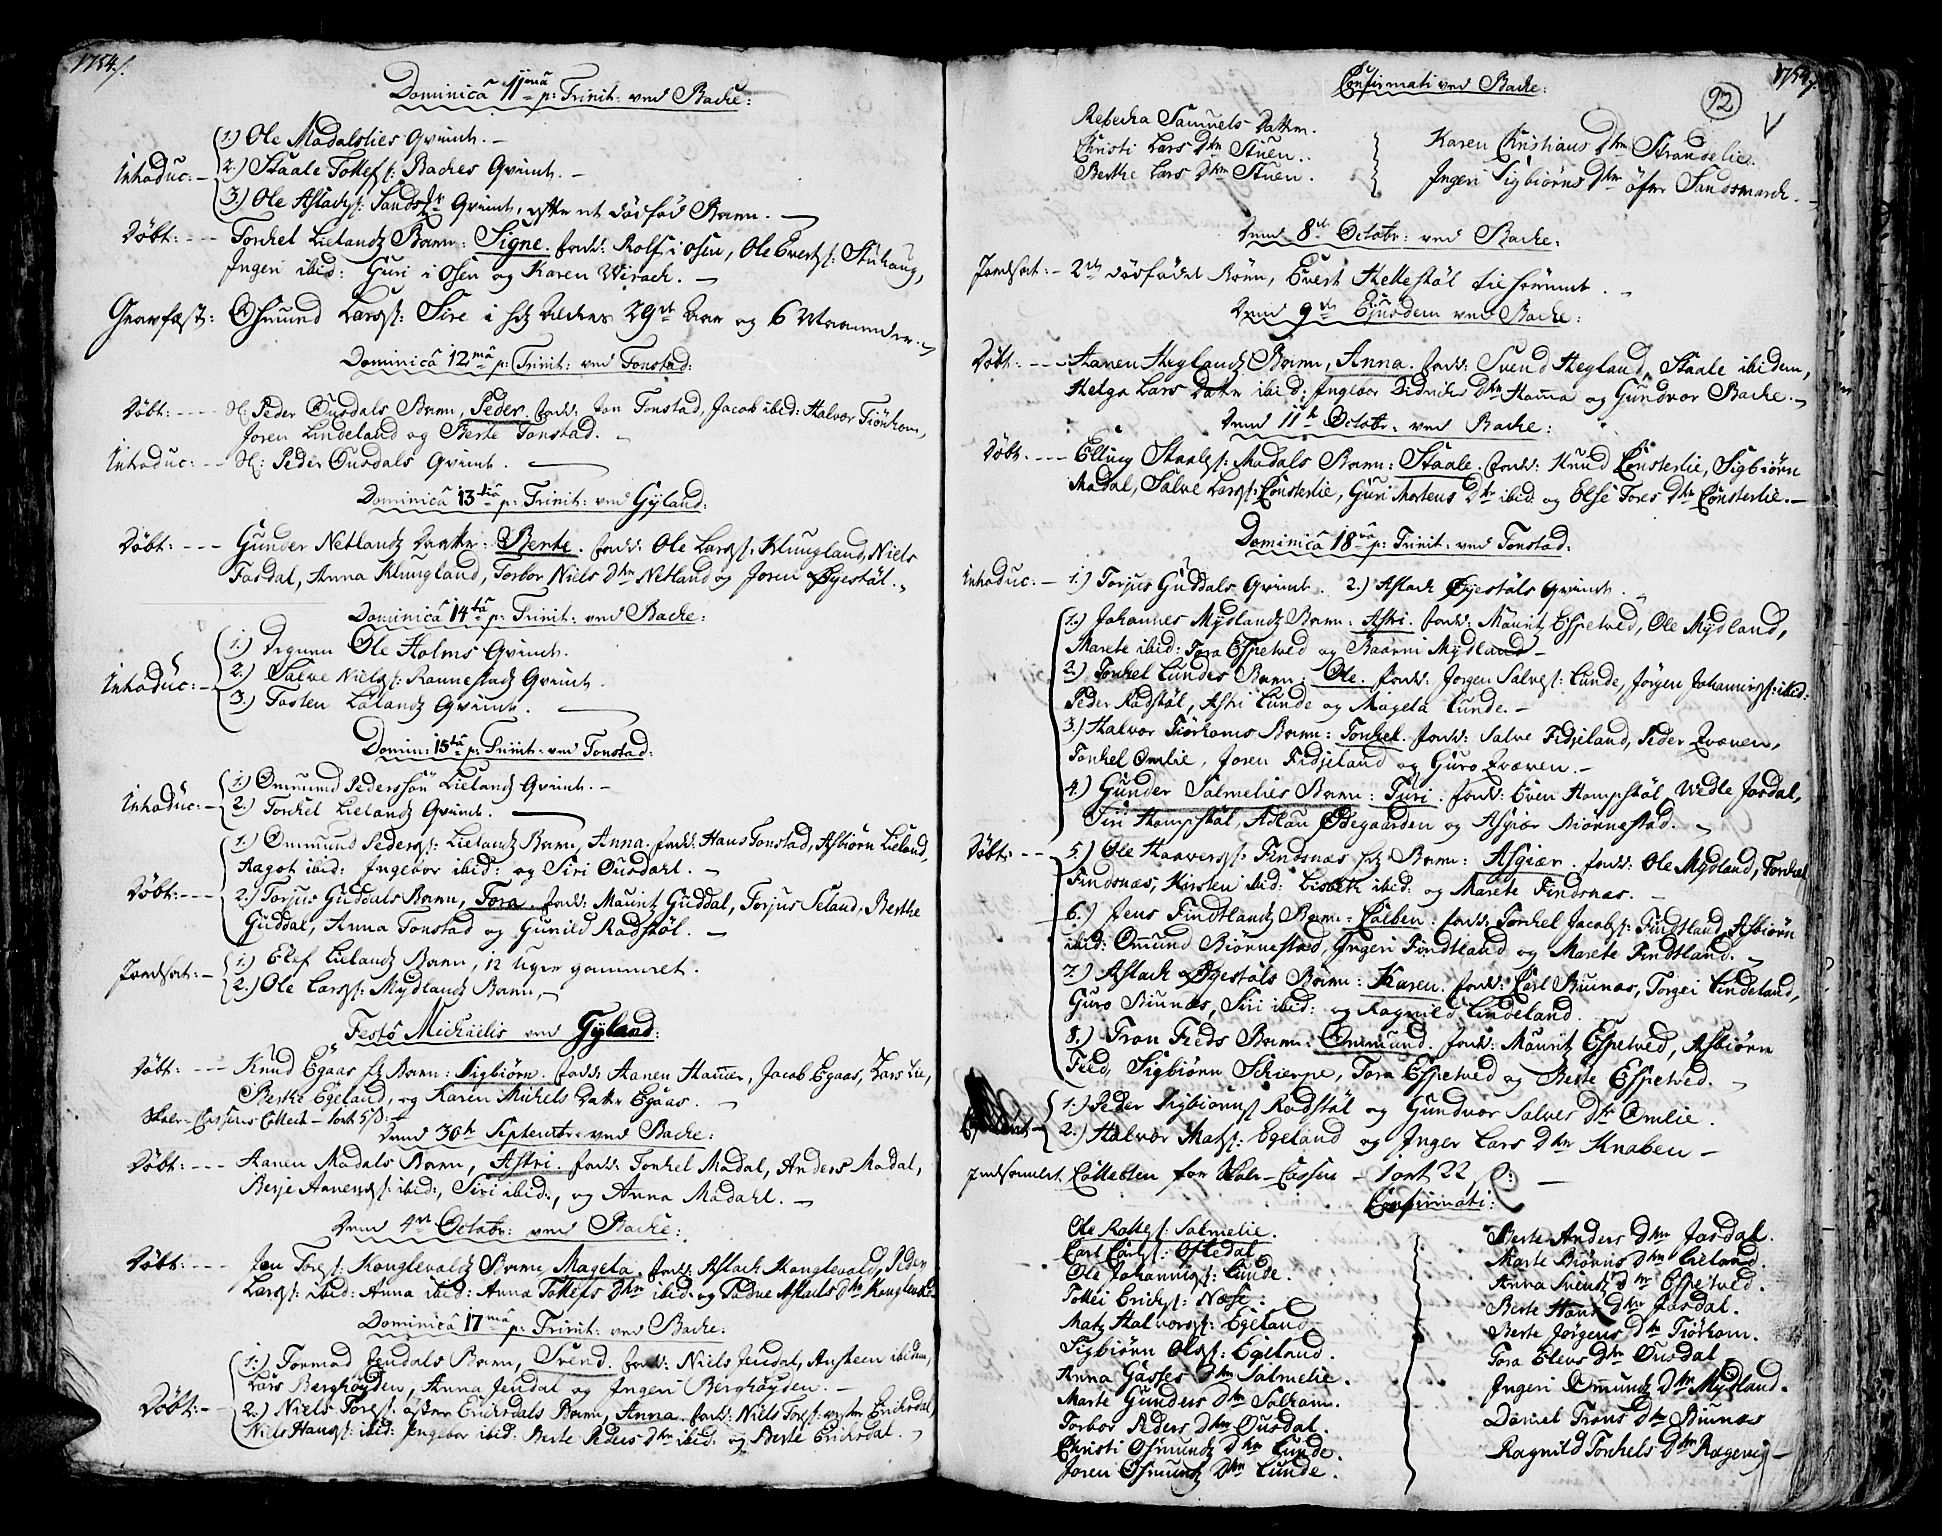 1754/.
Dominicâ 11mâ p: Trinit: ved Backe:
1.) Ole Madalslies Qvinde. –
Introduc: – 2.) Staale Tollefs: Backes Qvinde. –
3.) Ole Aslachs: Qvinde, efter et dødfød Barn. –
Døbt: --- Torchel Lielands Barn: Signe. fadd: Rolf i Osen, Ole Evers: Stuhaug,
Ingeri ibid: Guri i Osen og Karen Wirach. –
Gravfæst: Osmund Lars: Sire i sit Alders 29de Aar og 6 Maaneder. –
Dominicâ 12mâ p: Trinit: ved Tonstad:
Døbt: ---- H: Peder Ousdals Barn, Peder. fadd: Jon Tonstad, Jacob ibid: Halvor Fiørhom,
Joren Lindeland og Berte Tonstad. –
Introduc: -- H: Peder Ousdals Qvinde. –
Dominicâ 13tiâ p: Trinit: ved Gyland:
Døbt: --- Gunder Netlands Datter: Berte. fadd: Ole Lars: Klungland, Niels
Fasdal, Anna Klungland, Torbor Niels Dtr Netland og Joren Øyestøl. –
Dominicâ 14tâ p: Trinit: ved Backe:
1.) Ole Holms Qvinde.
Introduc: – 2.) Salve Niels: Rannestads Qvinde.
3.) Tosten Lølands Qvinde. –
Domin: 15tâ p: Trinit: ved Tonstad:
1.) Ommund Pederssøn Lielands Qvinde. –
Introduc: – 2.) Torchel Lielands Qvinde. –
1.) Ommund Peders: Lielands Barn, Anna. fadd: Hans Tonstad, Asbiørn Lieland,
Aagot ibid: Ingebor ibid: og Siri Ousdahl. –
Døbt: --- 2.) Torjus Guddals Barn, Tora. fadd: Mauritz Guddal, Torjus Seland, Berthe
Guddal, Anna Tonstad og Gunild Rødstøl. –
Jordsat: – 1.) Elef Lielands Barn, 12 Uger gammelt.
2.) Ole Lars: Mydlands Barn, –
Festô Michaëlis ved Gyland:
Døbt: --- Knud Egaas Barn: Sigbiørn. fadd: Aanen Hamar, Jacob Egaas, Lars Lie,
Berthe Egeland, og Karen Michels Datter Egaas. –
Collect – 1ort 5 β. –
Dend 30te Septembr: ved Backe:
Døbt: --- Aanen Madals Barn, Astri. fadd: Torchel Madal, Anders Madal,
Berje Aanens: ibid:, Siri ibid:, og Anna Madahl. –
Dend 4de Octobr: ved Backe:
Døbt: --- Jon Tors: Konglevolds Barn, Mageta. fadd: Aslach Konglevold, Peder
Lars: ibid: Anna ibid: Anna Tollefs Dtr ibid: og Aslachs Dtr Konglevold
Dominicâ 17mâ p: Trinit: ved Backe:
1.) Tormod Jendals Barn, Svend. fadd: Niels Jendal, Ansteen ibidem,
Lars Berghøyden, Anna Jendal og Ingeri Berghøyden. –
Døbt: – 2.) Niels Tors: Ericksdals Barn, Anna. fadd: Niels Tors: Ericksdal,
Niels Hans: ibid: Ingebor ibid: Berte Peders Dtr ibid: og Berte Ericksdal. –
1754/.
92
Confirmati ved Backe:
Rebecka Samuels Datter.
Christi Lars Dtr Stuen.
Berthe Lars Dtr Stuen.
Karen Christians Dtr Strandelie.
Ingeri Sigbiørns Dtr øfre Sandsmarck.
Dend 8de Octobr: ved Backe:
Jordsat: – 2de dødfødde Børn, Evert Hellestøl tilhørende. –
Dend 9de Ejusdem ved Backe:
Døbt: --- Aanen Heglands Barn, Anna. fadd: Svend Hegland, Staale ibidem,
Helga Lars Datter ibid: Ingebor Didrichs Dtr Hanna og Gundvor Backe. –
Dend 11te Octobr: ved Backe:
Døbt. --- Elling Staals: Madals Barn: Staale. fadd: Knud Lonsterlie, Sigbiørn
Madal, Salve Lars: Lonsterlie, Guri Mortens Dtr ibid: og Else Tores Dtr Lonsterlie. –
Dominicâ 18vâ p: Trinit: ved Tonstad:
Introduc: – 1.) Torjus Guddals Qvinde. 2.) Aslach Øyestøls Qvinde. –
1.) Johannes Mydlands Barn: Astri. fadd: Mauritz Espetved, Ole Mydland,
Marete ibid: Tora Espetved og Baarni Mydland –
2.) Torchel Lundes Barn: Ole. fadd: Jørgen Salves: Lunde, Jørgen Johannis: ibid:
Peder Rødstøl, Astri Lunde og Mageta Lunde. –
3.) Halvor Fiørhoms Barn: Torchel. fadd: Salve Fidjeland, Peder Qvæven,
Torchel Omlie, Joren Fidjeland og Guro Qvæven. –
4.) Gunder Salmelies Barn: Turi. fadd: Even Hompstøl, Wedle Josdal,
Siri Hompstøl, Adlau Ødegaarden og Asgiær Biørnestad. –
Døbt: -- 5.) Ole Haavers: Findsnæs Barn: Asgiær. fadd: Ole Mydland, Torchel
Findsnæs, Kirsten ibid: Lisbeth ibid: og Marete Findsnæs. –
6.) Jens Findtlands Barn: Colben. fadd: Torchel Jacobs: Findtland, Asbiørn
ibid: Omund Biørnestad, Ingeri Findtland og Marete Findtland. –
7.) Aslach Øyestøls Barn: Karen. fadd: Carl Biunæs, Torgei Lindeland,
Guro Biunæs, Siri ibid: og Ragnild Lindeland.
8.) Tron Fieds Barn: Ommund. fadd: Mauritz Espetved, Asbiørn
Fied, Sigbiørn Skierpe, Tora Espetved og Berte Espetved. –
1.) Peder Sigbiørns: Rødstøl og Gundvor Salves Dtr Omlie.
2.) Halvor Mats: Egeland og Inger Lars Dtr Knaben –
Indsamlet Collecten for – 1ort 22 β: –
Confirmati:
Ole Rolfs: Salmelie.
Carl Carls: Ostedal.
Ole Johannis: Lunde.
Tollei Erichs: Næse.
Mats Halvors: Egeland
Sigbiørn Ols: Egeland.
Anna Gasses Dtr Salmelie.
Marte Gunders Dtr Solhom.
Torbor Peders Dtr Ousdal.
Christi Osmunds Dtr Lunde.
Joren Osmunds Dtr Lunde.
Berte Anders Dtr Josdal.
Marte Biørns Dtr Lieland.
Anna Svends Dtr Espetved.
Berte Hans Dtr Josdal.
Berte Jørgens Dtr Fiørhom.
Tora Elevs Dtr Ousdal
Ingeri Omunds Dtr Mydland.
Daniel Trons Dtr Biunæs
Ragnild Torchels Dtr Røgevig –